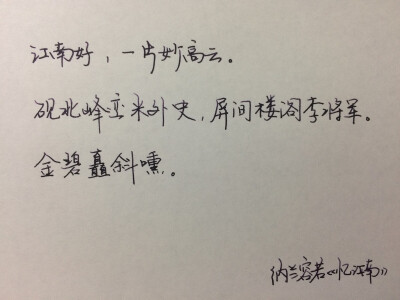 江南好，一片妙高云。
砚北峰峦米外史，屏间楼阁李将军。
金碧矗斜曛。
纳兰容若《忆江南》